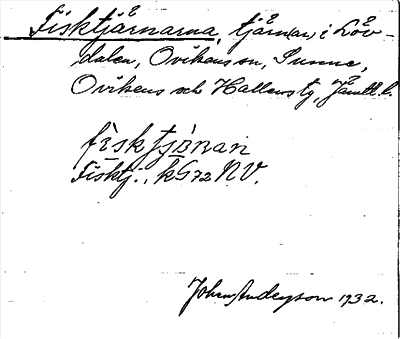 Fisktjärnarna, tjärnar, i Löv-
dalen, Ovikens sn, Sunne,
Ovikens och Hallens tg, Jämtl. l.
fisktjɵ̀nan
Fisktj., kG72 NV.
Johan Anderzson 1932.